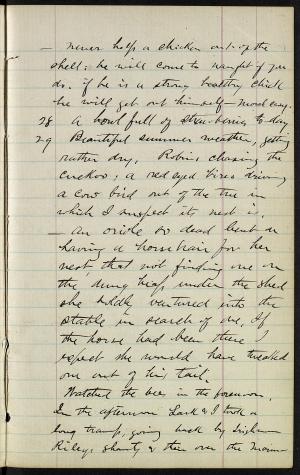 — never help a chicken out of the
shell: he will come to naught if you
do. if he is a strong healthy chick
he will get out himself
28 A bowl full of strawberries to-day
29 Beautiful summer weather, getting
rather dry. Robin chasing the
cuckoo; a red eyed vireo driving
a cow bird out of the tree in
which I suspect its nest is.
— An oriole so dead bent on
having a horsehair for her
nest, that not finding one on
the dung heap under the shed
she boldly ventured into the
stable in search of one. If
the horse had been there I
expect she would have tweaked
one out of his tail.
Watched the bees in the forenoon.
In the afternoon & I took a
long tramp, going back by
Riley's shanty & then over the